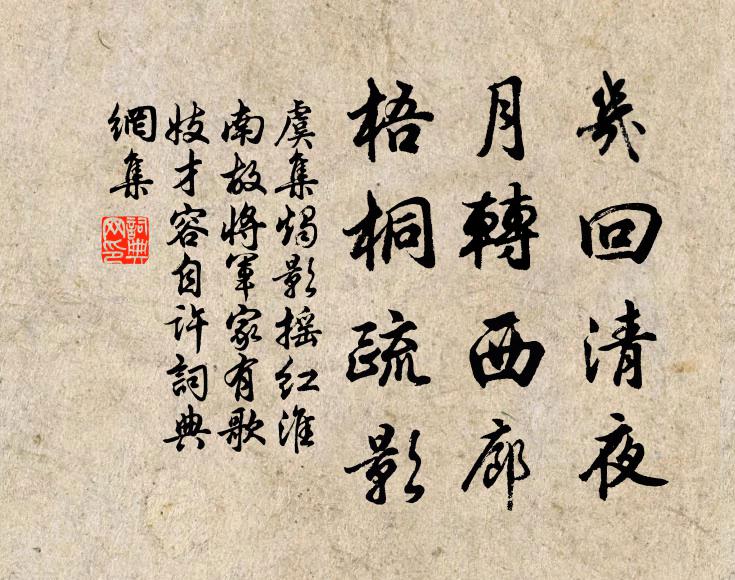 幾回清夜
月轉西廊
梧桐疏影
虞集燭影搖紅淮
南故將軍家有歌
妓才容自許詞典
網集
詞典
网印